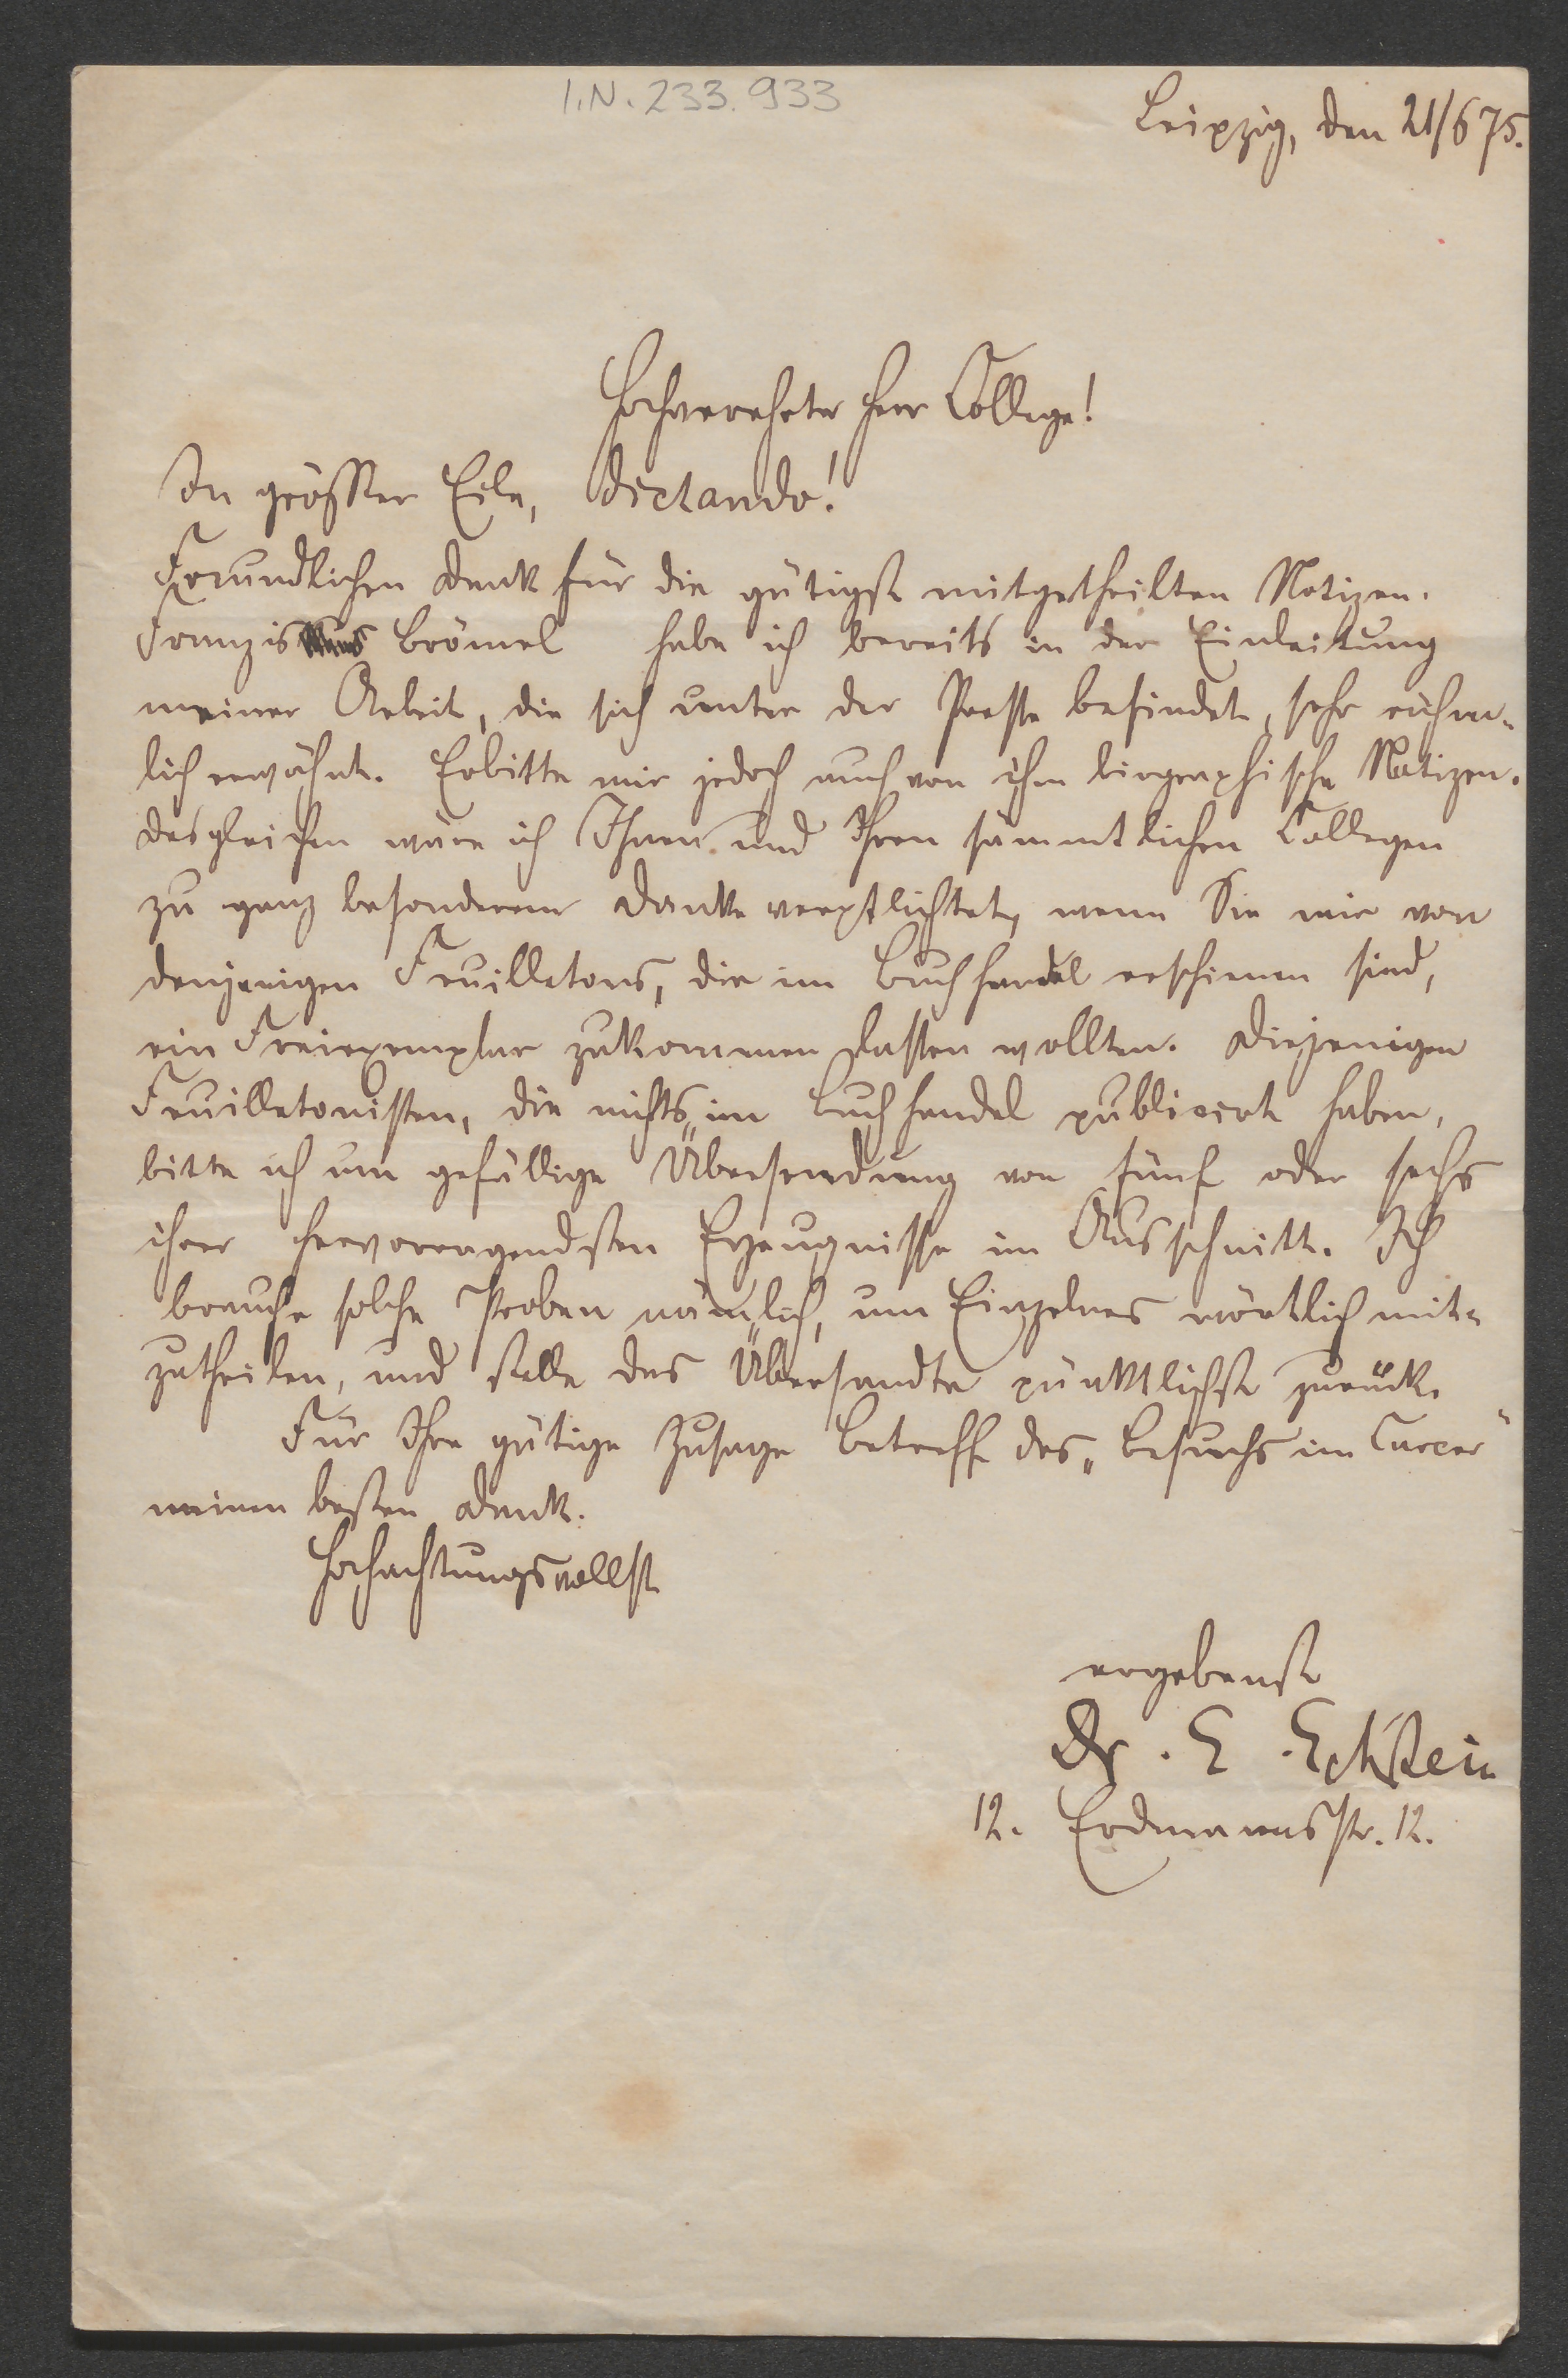 I.N. 233.933
Leipzig, den 21/6 75.
Hochverehrter Herr College!
In grösster Eile, dictando!
Freundlichen Dank für die gütigst mitgetheilten Notizen.
Franzis Brömel habe ich bereits in der Einleitung
meiner Arbeit, die sich unter der Presse befindet, sehr rühm-
lich erwähnt. Erbitte mir jedoch auch von ihm biographische Notizen.
Desgleichen wäre ich Ihnen und Ihren sämmtlichen Collegen
zu ganz besonderem Danke verpflichtet, wenn Sie mir von
denjenigen Feuilletons, die im Buchhandel erschienen sind,
ein Freiexemplar zukommen lassen wollten. Diejenigen
Feuilletonisten, die nichts im Buchhandel publicirt haben,
bitte ich um gefällige Übersendung von fünf oder sechs
ihrer hervorragendsten Erzeugnisse im Ausschnitt. Ich
brauche solche Proben nämlich, um Einzelnes wörtlich mit-
zutheilen, und stelle das Übersandte pünktlichst zurück.
Für Ihre gütige Zusage betreff des „Besuchs im Carcer"
meinen besten Dank.
Hochachtungsvollst
ergebenst
Dr. E. Eckstein
12. Erdmannsstr. 12.